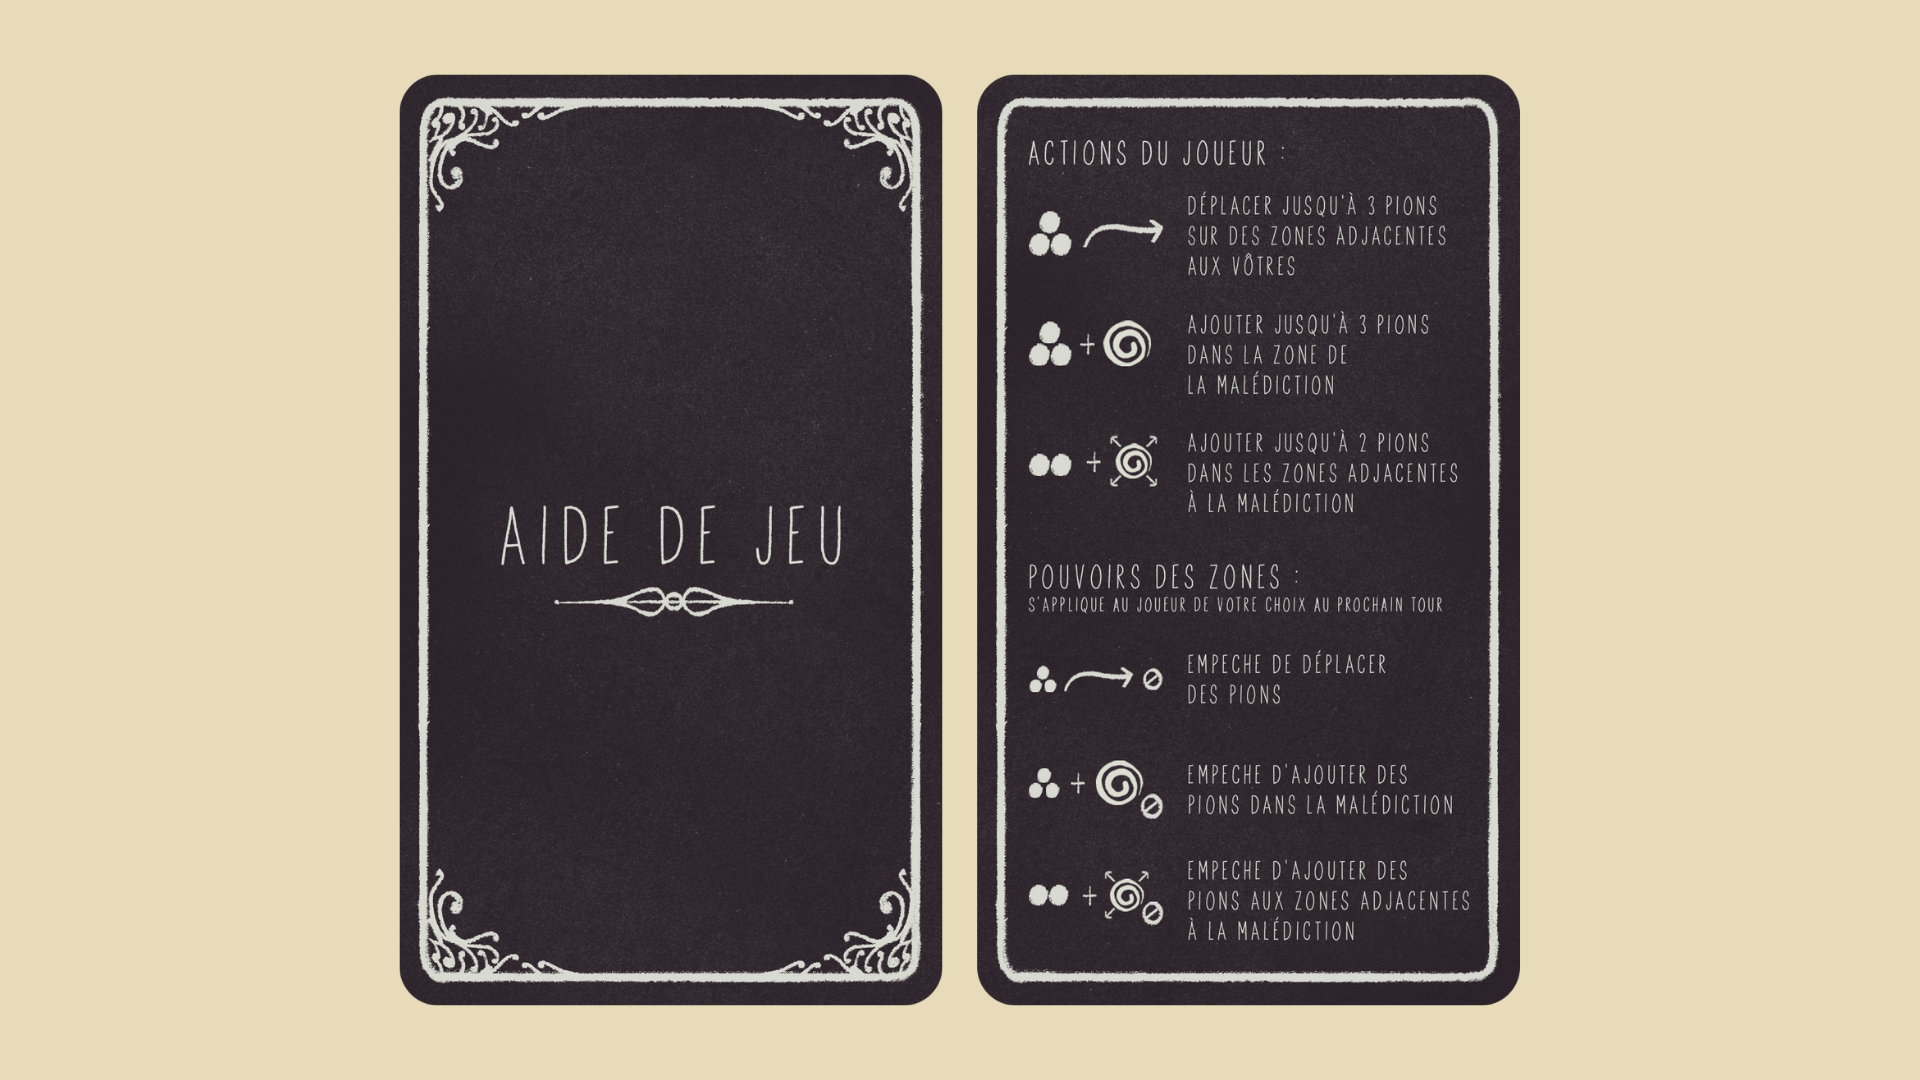 AIDE DE JEU
ACTIONS DU JOUEUR :
DÉPLACER JUSQU'À 3 PIONS
SUR DES ZONES ADJACENTES
AUX VÔTRES
AJOUTER JUSQU'À 3 PIONS
DANS LA ZONE DE
LA MALÉDICTION
AJOUTER JUSQU'À 2 PIONS
DANS LES ZONES ADJACENTES
À LA MALÉDICTION
POUVOIRS DES ZONES :
S'APPLIQUE AU JOUEUR DE VOTRE CHOIX AU PROCHAIN TOUR
EMPECHE DE DÉPLACER
DES PIONS
EMPECHE D'AJOUTER DES
PIONS DANS LA MALÉDICTION
EMPECHE D'AJOUTER DES
PIONS AUX ZONES ADJACENTES
À LA MALÉDICTION